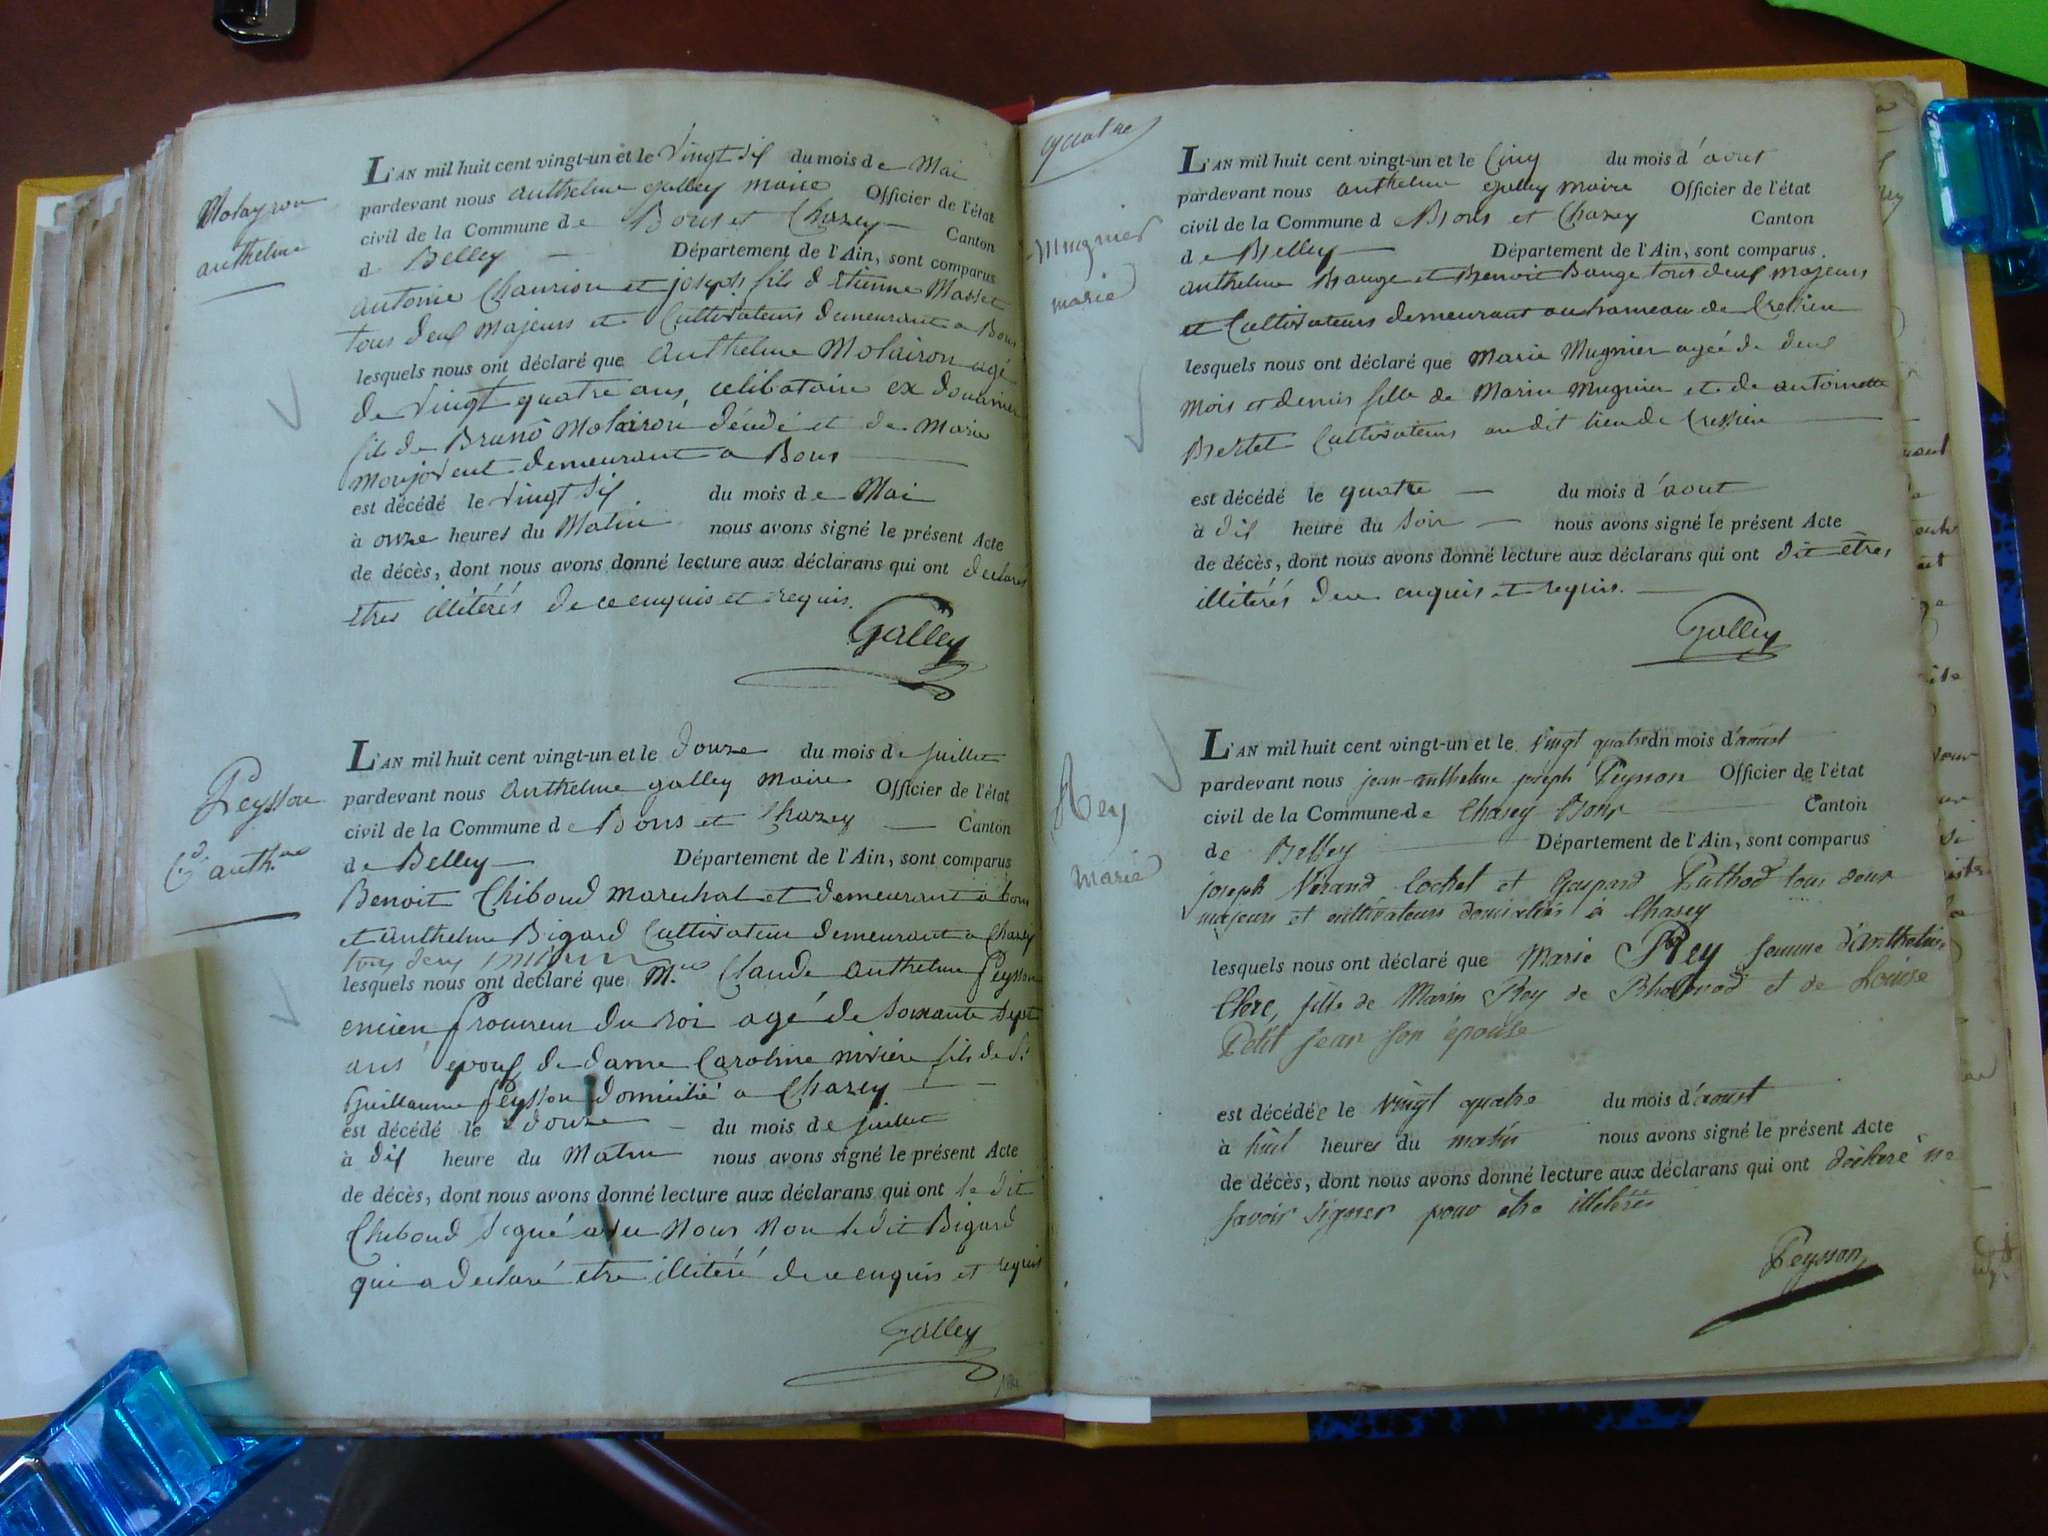 Molayron
antheline
L'AN mil huit cent vingt-un et le vingt six du mois de Mai
pardevant nous anthelme galley maire Officier de l'état
civil de la Commune de Bons et Chazey Canton
de Belley Département de l'Ain, sont comparus
antoine Chaurion et joseph fils d'Etienne Masset
tous deux majeurs et Cultivateurs demeurant a Bons
lesquels nous ont déclaré que anthelme Molairon agé
de vingt quatre ans, celibataire ex douanier
fils de Bruno Molairon décédé et de Marie
monjovent demeurant a Bons
est décédé le vingt six du mois de Mai
à onze heures du Matin nous avons signé le présent Acte
de décès, dont nous avons donné lecture aux déclarans qui ont declarés
etres illitérés de ce enquis et requis.
Galley
Peysson
Cd. anthme
L'AN mil huit cent vingt-un et le douze du mois de juillet
pardevant nous anthelme galley maire Officier de l'état
civil de la Commune de Bons et Chazey Canton
de Belley Département de l'Ain, sont comparus
Benoit Chiboud marechal et demeurant a bons
et anthelme Bigard Cultivateur demeurant a Chazey
tous deux
lesquels nous ont déclaré que Claude anthelme Peysson
encien procureur du roi agé de soixante sept
ans epoux de dame Caroline rivière fils de
guillaume Peysson domicilié a Chazey
est décédé le douze du mois de juillet
à dix heure du Matin nous avons signé le présent Acte
de décès, dont nous avons donné lecture aux déclarans qui ont le dit
Chiboud signé avec nous non le dit Bigard
qui a declaré etre illitéré de ce enquis et requis
Galley
quatre
Mugnier
marie
L'AN mil huit cent vingt-un et le cinq du mois d'aout
pardevant nous anthelme galley maire Officier de l'état
civil de la Commune d Bons et Chazey Canton
de Belley Département de l'Ain, sont comparus
anthelme Bauge et Benoit Bauge tous deux majeurs
et Cultivateurs demeurant au hameau de Cressieu
lesquels nous ont déclaré que Marie Mugnier agée de deux
mois et demis fille de Marin mugnier et de antoinette
Bertet Cultivateurs au dit lieu de Cressieu
est décédé le quatre du mois d'aout
à dix heure du soir nous avons signé le présent Acte
de décès, dont nous avons donné lecture aux déclarans qui ont dit êtres
illitérés de ce enquis et requis.
Galley
Rey
marie
L'AN mil huit cent vingt-un et le vingt quatre du mois d'aoust
pardevant nous jean-anthelme joseph Peysson Officier de l'état
civil de la Commune de Chasey Bons Canton
de Belley Département de l'Ain, sont comparus
joseph Cochet et Gaspard Puthod tous deux
majeurs et cultivateurs domiciliés à Chasey
lesquels nous ont déclaré que Marie Rey femme d'Anthelme
Clerc, fille de Marin Rey de et de Louise
Petit jean son épouse
est décédée le vingt quatre du mois d'aoust
à huit heures du matin nous avons signé le présent Acte
de décès, dont nous avons donné lecture aux déclarans qui ont déclaré ne
savoir signer pour être illétérés
Peysson